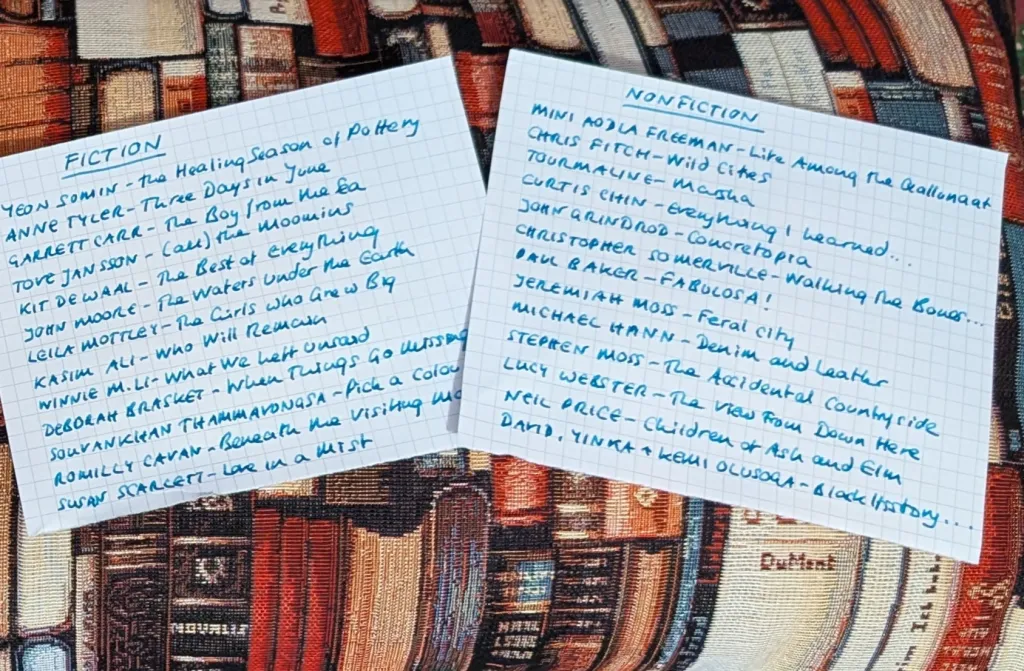 FICTION
YEON SOMIN - The Healing Season of Pottery
ANNE TYLER - Three Days in June
GARRETT CARR - The Boy from the Sea
TOVE JANSSON - (all) the Moomins
KIT DE WAAL - The Best of Everything
JOHN MOORE - The Waters Under the Earth
LEILA MOTTLEY - The Girls Who Grew Big
KASIM ALI - Who Will Remain
WINNIE M. LI - What We Left Unsaid
DEBORAH BRASKET - When Things Go Missing
SOUVANKHAN THAMMAVONGSA - Pick a Colou
ROMILLY CAVAN - Beneath the Visiting Mo
SUSAN SCARLETT - Love in a Mist
NONFICTION
MINI AODLA FREEMAN - Life Among the Qallunaat
CHRIS FITCH - Wild Cities
TOURMALINE - Marsha
CURTIS CHIN - Everything I Learned...
JOHN GRINDROD - Concretopia
CHRISTOPHER SOMERVILLE - Walking the Bones...
PAUL BAKER - FABULOSA!
JEREMIAH MOSS - Feral City
MICHAEL HANN - Denim and Leather
STEPHEN MOSS - The Accidental Countryside
LUCY WEBSTER - The View From Down Here
NEIL PRICE - Children of Ash and Elm
DAVID, YINKA + KEMI OLUSOGA - Black History...
DuMont